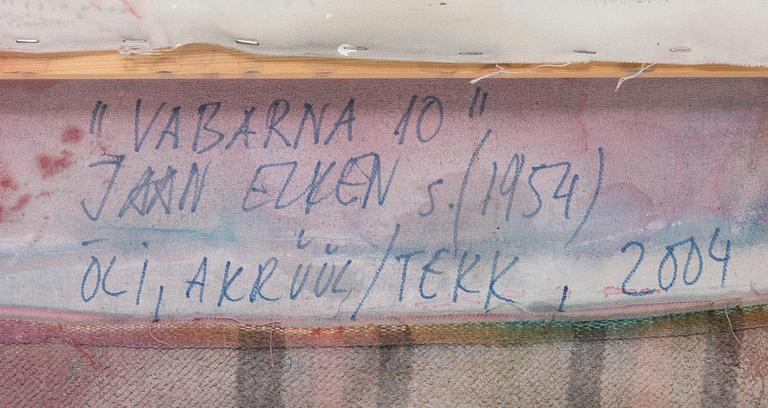 "VABARNA 10"
JAAN ELKEN s.(1954)
ÕLI, AKRÜÜL/TEKK, 2004